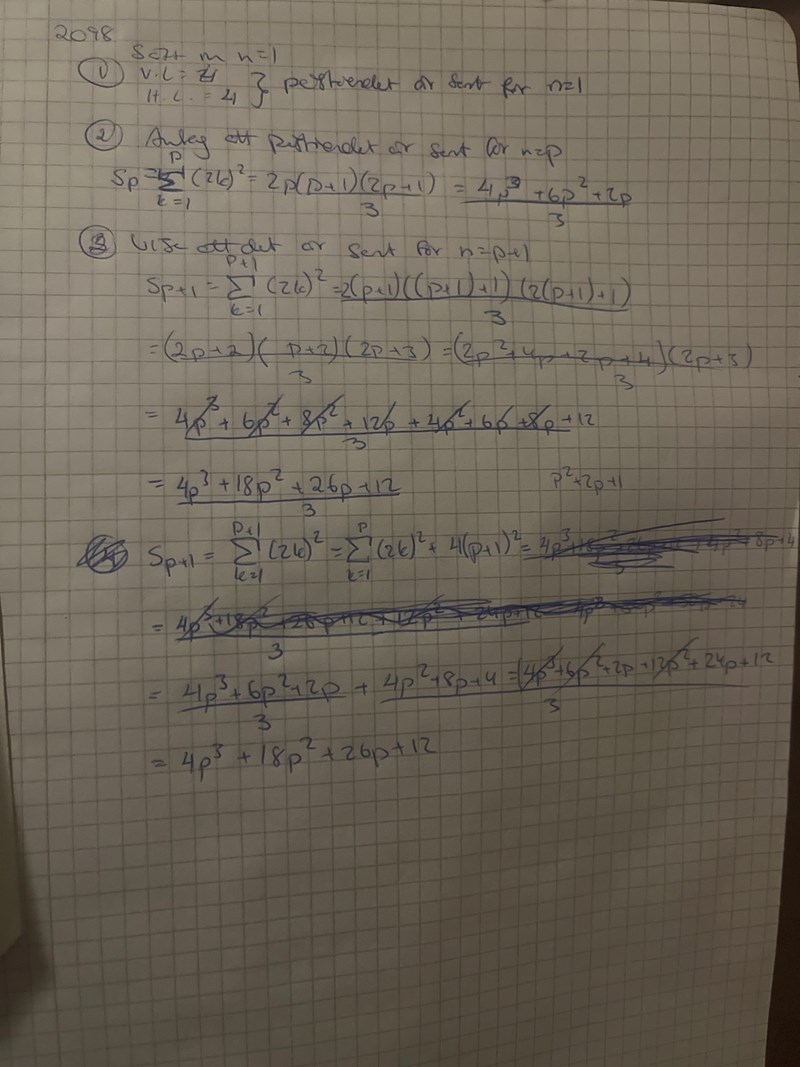 2098
Sett in n=1
① V.L = 4
H.L. = 4 } påstanden är sant for n=1
② Antag att påståendet är sant för n=p
Sp = Σ_{k=1}^{p} (2k)² = 2p(p+1)(2p+1)/3 = (4p³+6p²+2p)/3
③ Visa att det är sant för n=p+1
S_{p+1} = Σ_{k=1}^{p+1} (2k)² = 2(p+1)((p+1)+1)(2(p+1)+1)/3
= (2p+2)(p+2)(2p+3)/3 = (2p²+4p+2p+4)(2p+3)/3
= (4p³+6p²+8p²+12p+4p²+6p+8p+12)/3
= (4p³+18p²+26p+12)/3
p²+2p+1
S_{p+1} = Σ_{k=1}^{p+1} (2k)² = Σ_{k=1}^{p} (2k)² + 4(p+1)² =
=
= (4p³+6p²+2p)/3 + 4p²+8p+4 = (4p³+6p²+2p+12p²+24p+12)/3
= 4p³+18p²+26p+12